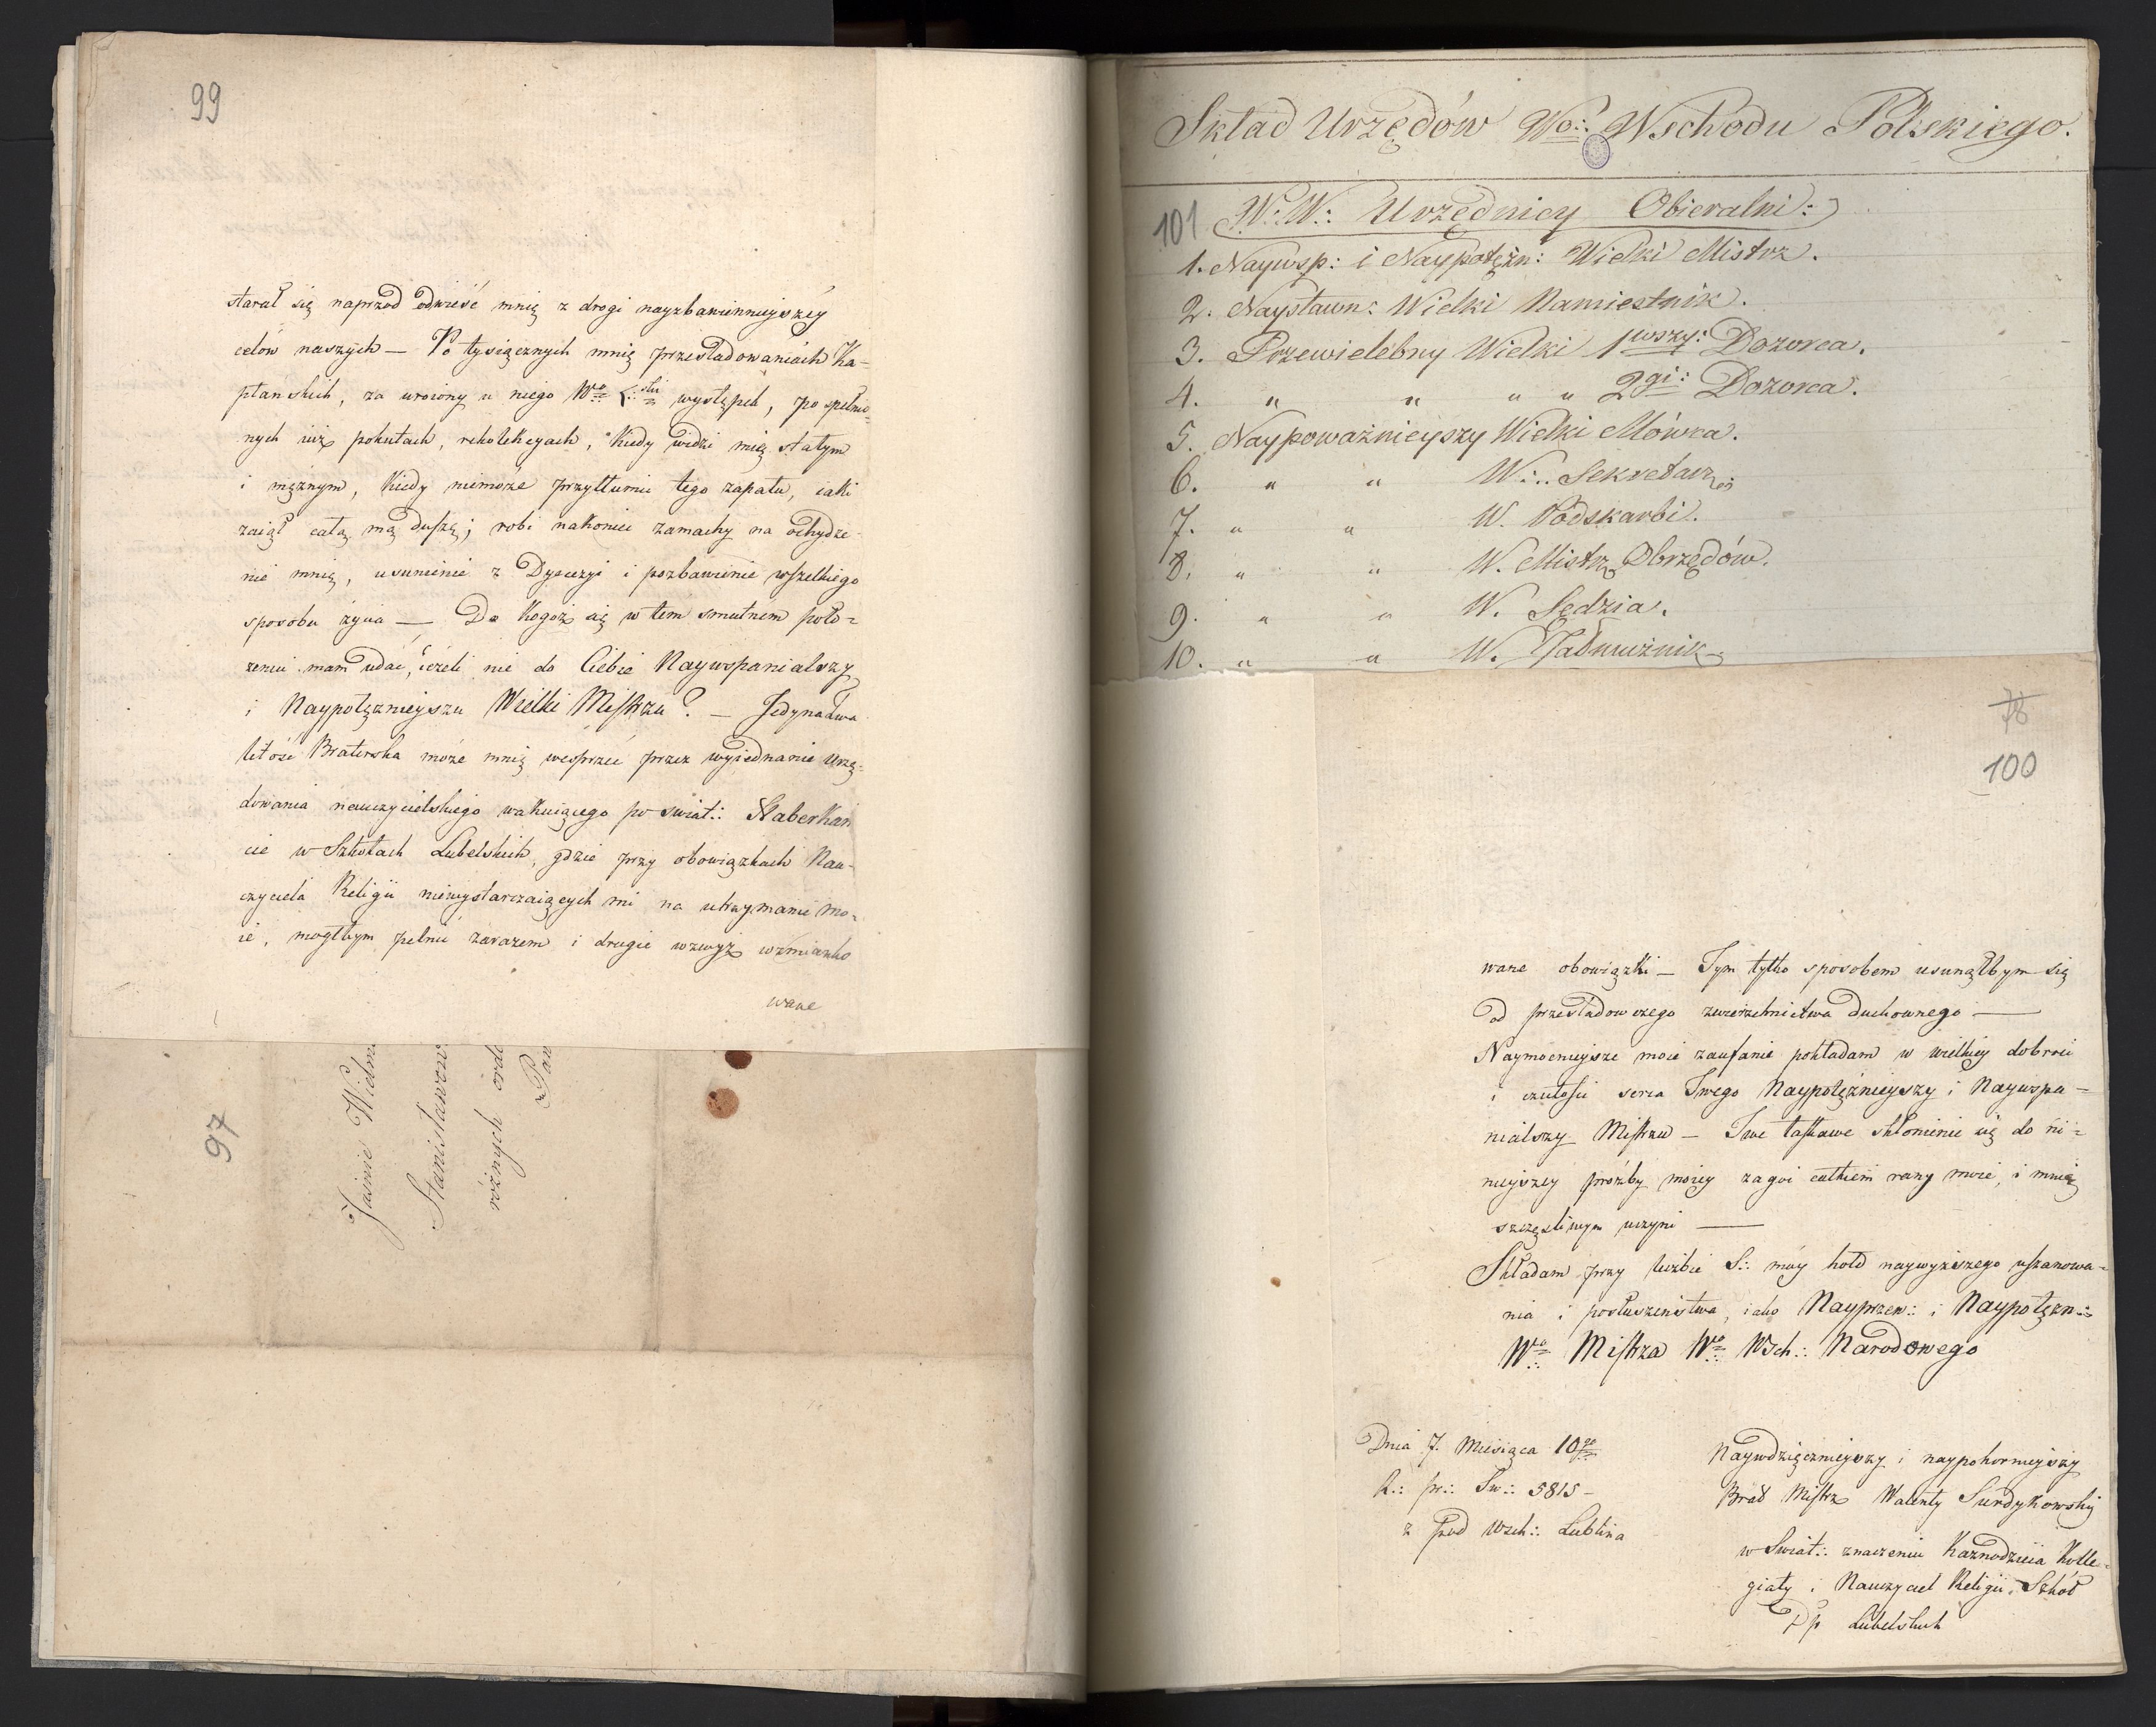 99
starał się naprzod odwieść mnię z drogi nayzbawiennieyszey
celów naszych — Po tysiącznych mnię prześladowaniach Ka-
płanskich, za uroiony u niego występek, po spełnio-
nych iuż pokutach, rekolekcyach, kiedy widzi mię stałym
i mężnym, kiedy niemoże przytłumić tego zapału, iaki
zaiął całą mą duszę; robi nakoniec zamachy na ohydze-
nie mnię, usunienie z Dyecezyi i pozbawienie wszelkiego
sposobu życia — Do kogoż się w tem smutnem poło=
zeniu mam udać, ieżeli nie do Ciebie Naywspanialszy
i Naypotężnieyszu Wielki Mistrzu? — Jedyna Twa
litość Braterska może mnię wesprzeć przez wyiednanie Urzę=
dowania nauczycielskiego wakuiącego po swiat∴ Haberkan
cie w Szkołach Lubelskich, gdzie przy obowiązkach Nau-
czyciela Religii niewystarczaiących mi na utrzymanie mo=
ie, mogłbym pełnić zarazem i drugie wzwyż wzmianko
wane
97
Jaśnie Wielm
Stanisławow
różnych orde
Pan
Skład Urzędów Wo∴ Wschodu Polskiego.
101 W∴W∴ Urzędnicy Obieralni:
1. Naywsp: i Naypotężn: Wielki Mistrz.
2. Naysławn: Wielki Namiestnik.
3. Przewielebny Wielki 1wszy: Dozorca.
4. " " " " 2gi: Dozorca.
5. Naypoważnieyszy Wielki Mówca.
6. " " W∴ Sekretarz
7. " " W. Podskarbi.
8. " " W. Mistrz Obrzędów.
9. " " W. Sędzia.
10. " " W. Jałmużnik
78
100
wane obowiązki — Tym tylko sposobem usunąłbym się
od prześladowczego zwierzchnictwa duchownego —
Naymocnieysze moie zaufanie pokładam w wielkiey dobroci
i czułości serca Twego Naypotężnieyszy i Naywspa=
nialszy Mistrzu — Twe łaskawe skłonienie się do ni=
nieyszey prożby moiey zagoi całkiem rany moie, i mnię
szczęśliwym uczyni —
Składam przy liczbie S∴ móy hołd naywyższego uszanowa=
nia i posłuszeństwa, iako Nayprzew∴ i Naypotężn∴
Wo∴ Mistrza Wo∴ Wsch∴ Narodowego
Dnia 7. Miesiąca 10go
R∴ pr∴ Św∴ 5815 —
z pod Wsch∴ Lublina
Naywdzięcznieyszy i naypokornieyszy
Brat Mistrz Walenty Surdykowskij
w Swiat∴ znaczeniu Kaznodzieia Kolle=
giaty i Nauczyciel Religii Szkół
Lubelskich